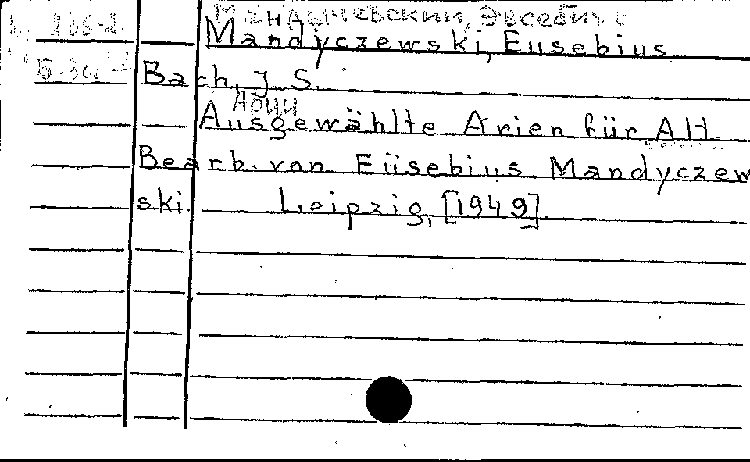 Мандычевский, Эвсебиус
Mandyczewski, Eusebius
Bach, J. S.
Ausgewählte Arien für Alt
Bearb. von Eusebius Mandyczew
ski. Leipzig, [1949]